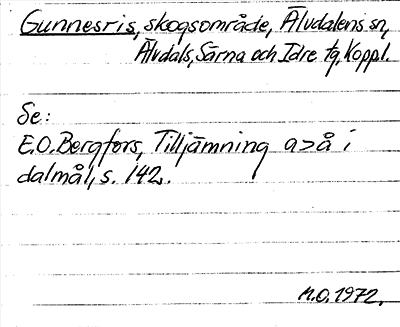 Gunnesris, skogsområde, Älvdalens sn,
Älvdals, Särna och Idre tg, Koppl.
Se:
E.O. Bergfors, Tilljämning a>å i
dalmål, s. 142.
M.O. 1972.